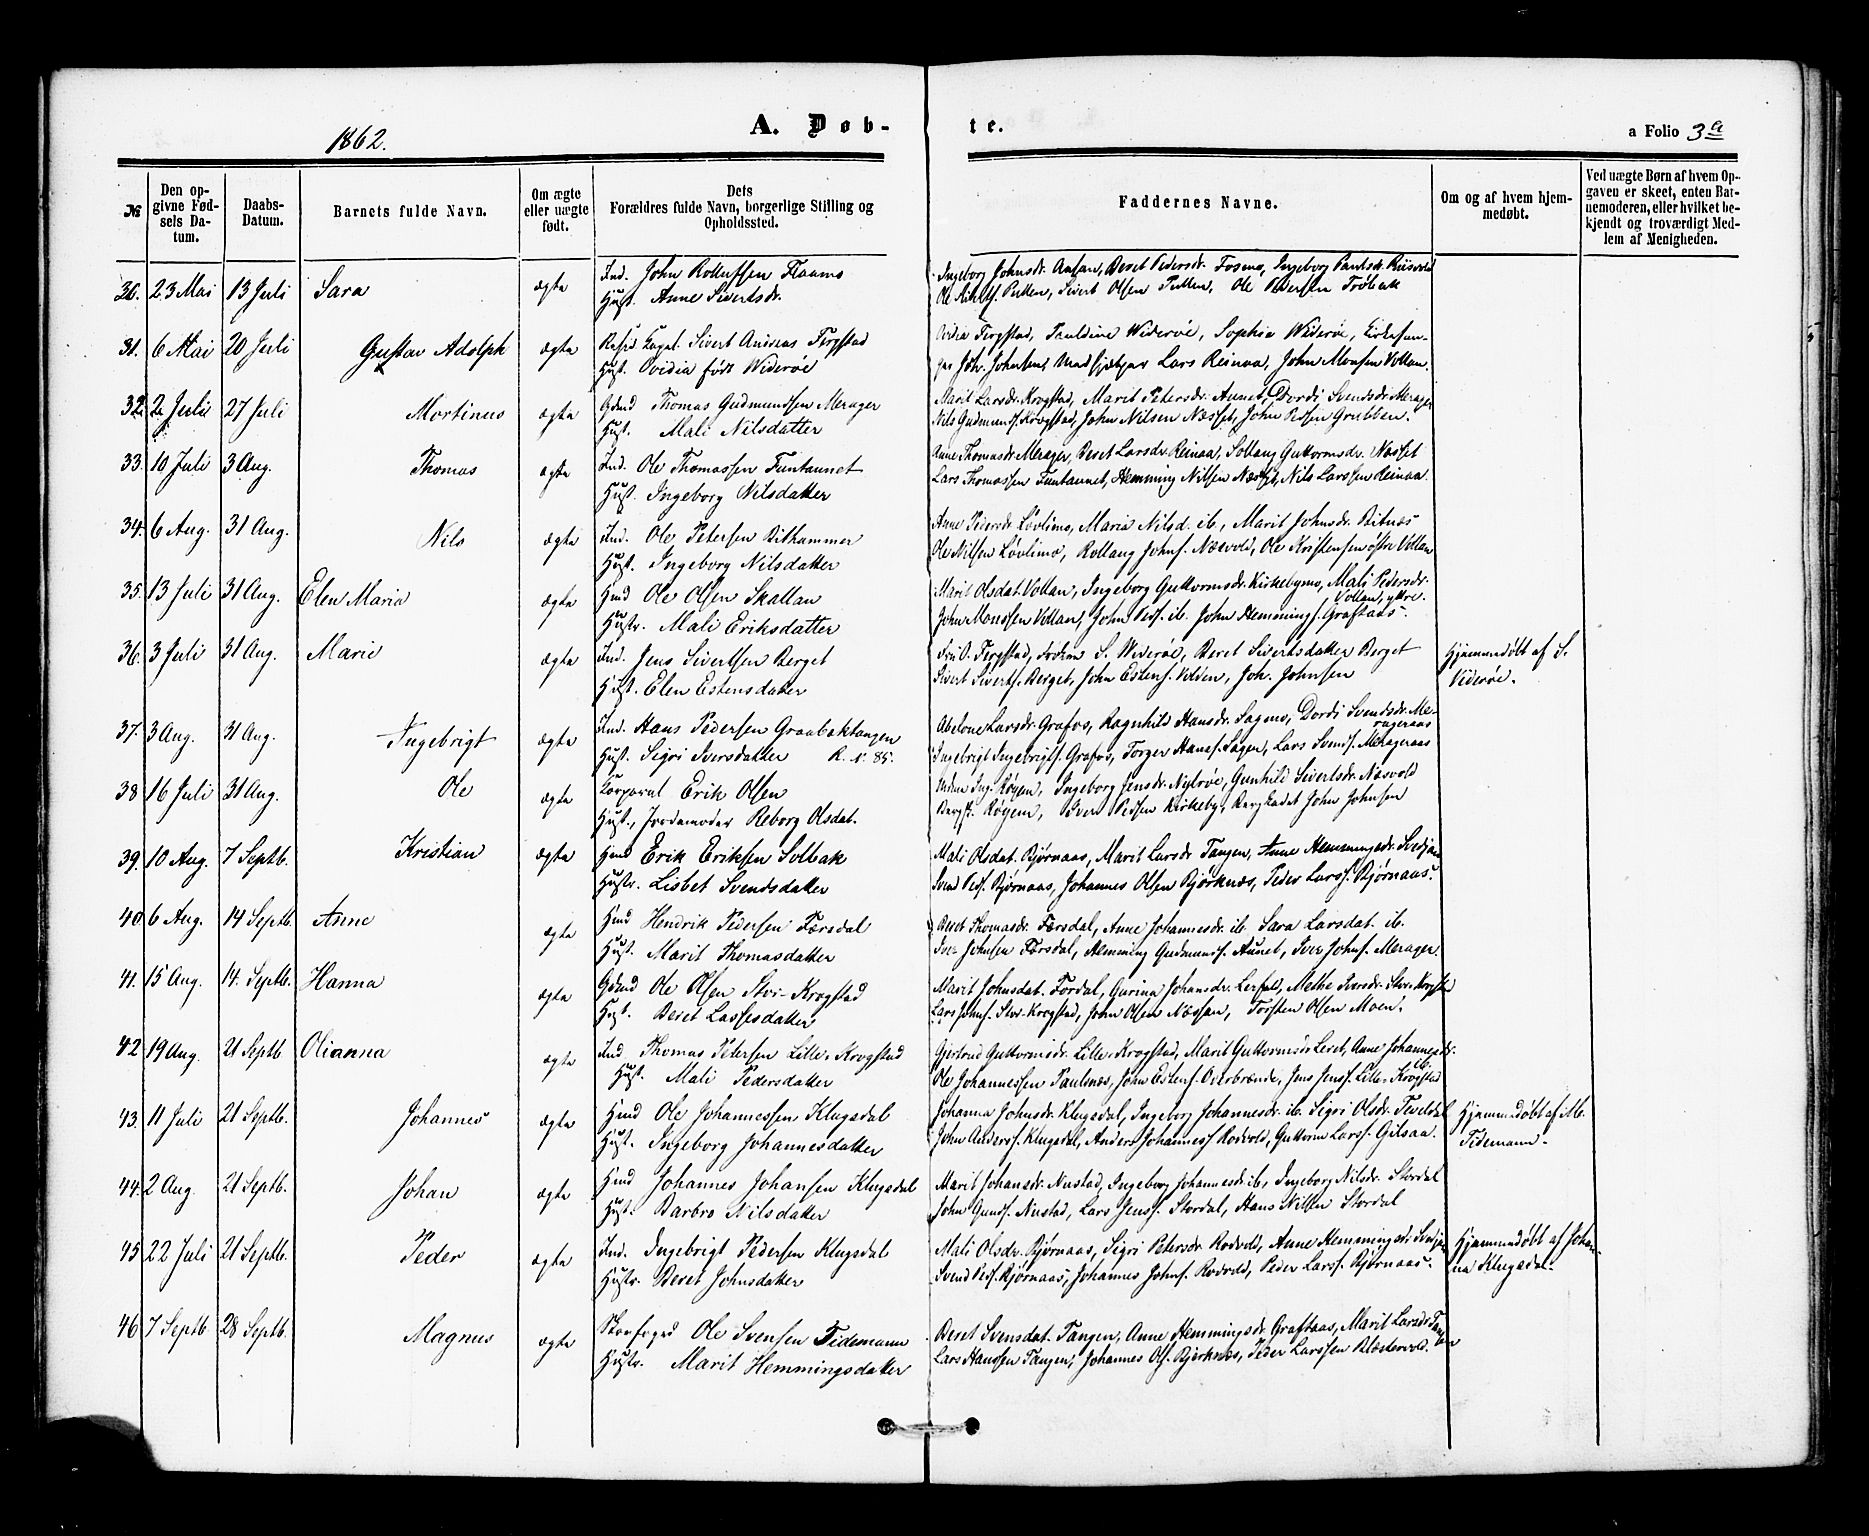 1862.
A. Døb-
te.
a Folio 3a
№
Den opgivne Fødsels Datum.
Daabs-Datum.
Barnets fulde Navn.
Om ægte eller uægte født.
Dets Forældres fulde Navn, borgerlige Stilling og Opholdssted.
Faddernes Navne.
Om og af hvem hjemmedøbt.
Ved uægte Børn af hvem Opgaven er skeet, enten Barnemoderen, eller hvilket bekjendt og troværdigt Medlem af Menigheden.
30. 23 Mai 13 Juli Sara ægte Ind. John Flaamo
Hust. Anne Sivertsdr.
Ingeborg Johnsdr. Aunan, Beret Pedersdr. Fosmo, Ingeborg
Putten, Sivert Olsen Putten, Ole Pedersen
31. 6 Mai 20 Juli Gustav Adolph ægte Resid. Capel. Sivert Andreas Fergstad
Hust. Ovidia født Widerøe
Fergstad, Pauldine Widerøe, Sophia Widerøe, Kirkesan-
ger Joh. Johnsen, Lars Reinaa, John Monsen Vollan.
32. 2 Juli 27 Juli Mortinus ægte Gdmd Thomas Gudmundsen Merager
Hust. Mali Nilsdatter
Marit Larsdr. Krogstad, Marit Petersdr. Aunet, Dordi Svendsdr. Merager
Nils Gudmunds. Krogstad, John Nilsen Næsset, John Grubben.
33. 10 Juli 3 Aug. Thomas ægte Ind. Ole Thomassen Funtaunet
Hust. Ingeborg Nilsdatter
Anne Thomasdr. Merager, Beret Larsdr. Reinaa, Solloug Guttormsdr. Næsset
Lars Thomassen Funtaunet, Hemming Nilsen Næsset, Nils Larssen Reinaa.
34. 6 Aug. 31 Aug. Nils ægte Ind. Ole Petersen Bithammer
Hust. Ingeborg Nilsdatter
Anne Pedersdr. Løvlimo, Maria Nilsd. ib., Marit Johnsdr. Bitnæs
Ole Nilsen Løvlimo, Rolloug Johns. Næsvold, Ole Kristensen østre Vollan
35. 13 Juli 31 Aug. Elen Maria ægte Hmd Ole Olsen Skallan
Hustr. Mali Eriksdatter
Marit Olsdat. Vollan, Ingeborg Guttormsdr. Kirkebymo, Mali Pedersdr.
Vollan, yttre.
John Monssen Vollan, John Peds. ib. John Hemmings. Graftaas.
36. 3 Juli 31 Aug. Marie ægte Ind. Jens Sivertsen Berget
Hust. Elen Estensdatter
Fru O. Fergstad, Frøken S. Widerøe, Beret Sivertsdatter Berget
Sivert Siverts. Berget, John Estens. Volden, Joh. Johnsen
Hjemmedøbt af S.
Viderøe.
37. 3 Aug. 31 Aug. Ingebrigt ægte Ind. Hans Pedersen Graabaktangen
Hust. Sigri Iversdatter R. N. 85.
Abelone Larsdr. Grafos, Ragnhild Hansdr. Sagmo, Dordi Svendsdr. Me-
rageraas
Ingebrigt Ingebrigts. Grafos, Torger Hans. Sagen, Lars Svends. Merageraas
38 16 Juli 31 Aug. Ole ægte Corporal Erik Olsen
Hust., Jordemoder Reborg Olsdat.
Røgen, Ingeborg Jensdr. Nydrøe, Gunhild Sivertsdr. Næsvold
Røgen, Iver Pedsen Kirkeby, Bergkadet John Johnsen
39. 10 Aug. 7 Septb. Kristian ægte Hmd Erik Eriksen Solbak
Hustr. Lisbet Svendsdatter
Mali Olsdat. Bjørnaas, Marit Larsdr Tangen, Anne Hemmingsdr.
Svend Peds. Bjørnaas, Johannes Olsen Bjørknæs, Peder Larss. Bjørnaas.
40. 6 Aug. 14 Septb. Anne ægte Hmd Hendrik Pedersen Færsdal
Hust. Marit Thomasdatter
Beret Thomasdr. Færsdal, Anne Johannesdr. ib. Sara Larsdat. ib.
Iver Johnsen Færsdal, Hemming Gudmunds. Aunet, Iver Johns. Merager.
41. 15 Aug. 14. Septb. Hanna ægte Gdmd Ole Olsen Stor-Krogstad
Hust. Beret Lassesdatter
Marit Johnsdat. Fordal, Gurina Johansdr. Lerfal, Methe Iversdr. Stor-Krogstad
Lars Johns. Stor-Krogstad, John Olsen Næssan, Torsten Olsen Moen.
42 19 Aug. 21 Septb Olianna ægte Ind Thomas Petersen Lille-Krogstad
Hust. Mali Pedersdatter
Gjertrud Guttormsdr. Lille-Krogstad, Marit Guttormsdr. Leret, Anne Johannesdr.
ib.
Ole Johannessen Paulsnæs, John Estens. Overbrende, Jens Jenss. Lille-Krogstad
43. 11 Juli 21 Septb. Johannes ægte Hmd Ole Johannessen Klugsdal
Hust. Ingeborg Johannesdatter
Johanna Johnsdr. Klugsdal, Ingeborg Johannesdr. ib. Sigri Olsdr. Teveldal
John Anderss. Klugsdal, Anders Johanness Rodvold, Guttorm Larss. Gilsaa.
Hjemmedøbt af M.
Tidemann.
44. 2 Aug. 21 Septb. Johan ægte Hmd Johannes Johansen Klugsdal
Hust. Barbro Nilsdatter
Marit Johansdr. Nustad, Ingeborg Johannesdr. ib., Ingeborg Nilsdr. Stordal
John Gunds. Nustad, Lars Jenss. Stordal, Hans Nilsen Stordal
45 22 Juli 21 Septb. Peder ægte Ind. Ingebrigt Pedersen Klugsdal
Hustr. Beret Johnsdatter
Mali Olsdr. Bjørnaas, Sigri Petersdr. Rodvold, Anne Hemmingsdr.
Svend Peds. Bjørnaas, Johannes Johns. Rodvold, Peder Larss. Bjørnaas.
Hjemmedøbt af Johan-
na Klugsdal.
46 7 Septb 28 Septb. Magnus ægte Skovfoged Ole Svensen Tidemann
Hustr. Marit Hemmingsdatter
Beret Svensdat. Tangen, Anne Hemmingsdr. Graftaas, Marit Larsdr Tangen
Lars Hanssen Tangen, Johannes Ols. Bjerknæs, Peder Larssen Blæstervold.